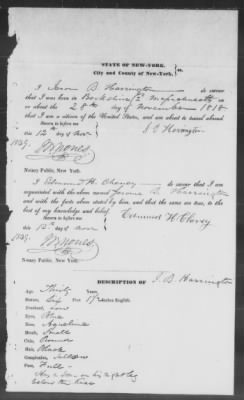 STATE OF NEW-YORK.
City and County of New-York. } ss.
I B Harrington do swear
that I was born in Massachusetts on
or about the 28th day of November 1818
that I am a citizen of the United States, and am about to travel abroad
Sworn to before me
this 12th day of Nov 1849.
Notary Public, New York.
I Edmund H. do swear that I am
acquainted with the above named B Harrington
and with the facts above stated by him, and that the same are true, to the
best of my knowledge and belief.
Edmund H.
Sworn to before me
this 12th day of Nov 1849.
Notary Public, New York.
DESCRIPTION OF J. B. Harrington
Age, Thirty Years,
Stature, Six Feet Inches English.
Forehead,
Eyes, Blue
Nose, Aquiline
Mouth, Small
Chin, Round
Hair, Black
Complexion, Sallow
Face, Full
Has a Scar on his right leg
below the knee